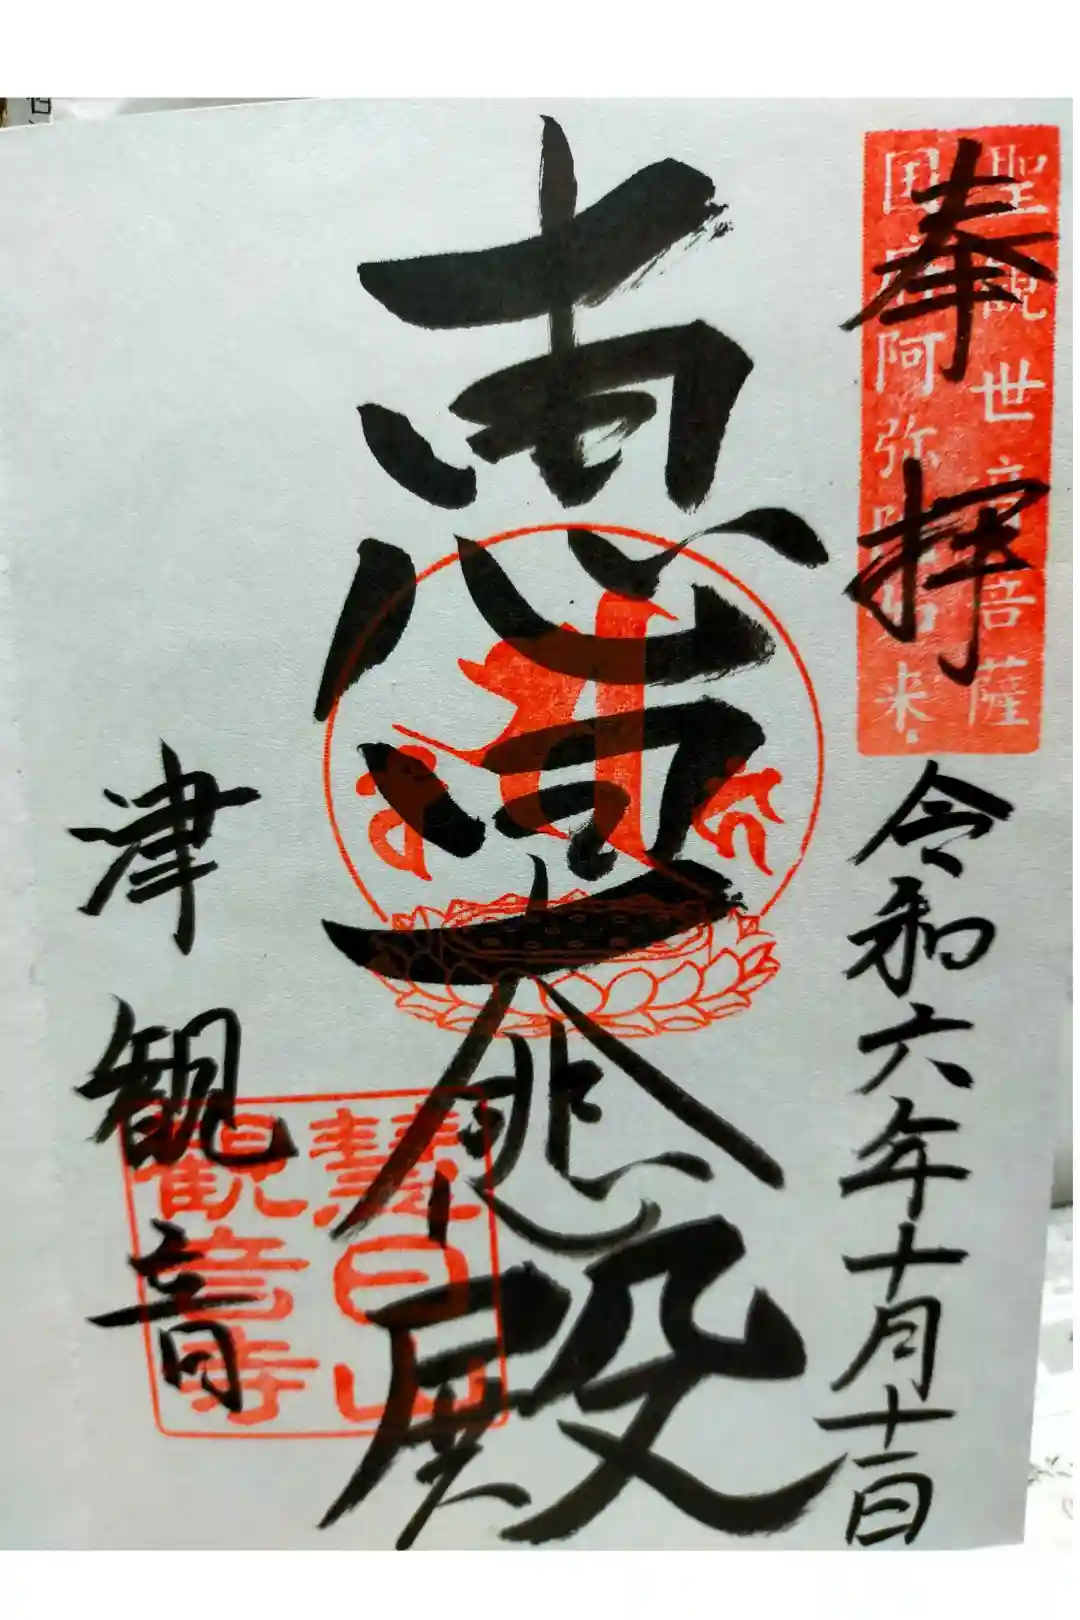 奉拝
聖観世音菩薩
国府阿弥陀如来
令和六年十月十一日
恵
殿
津観音
慧日山
觀音寺